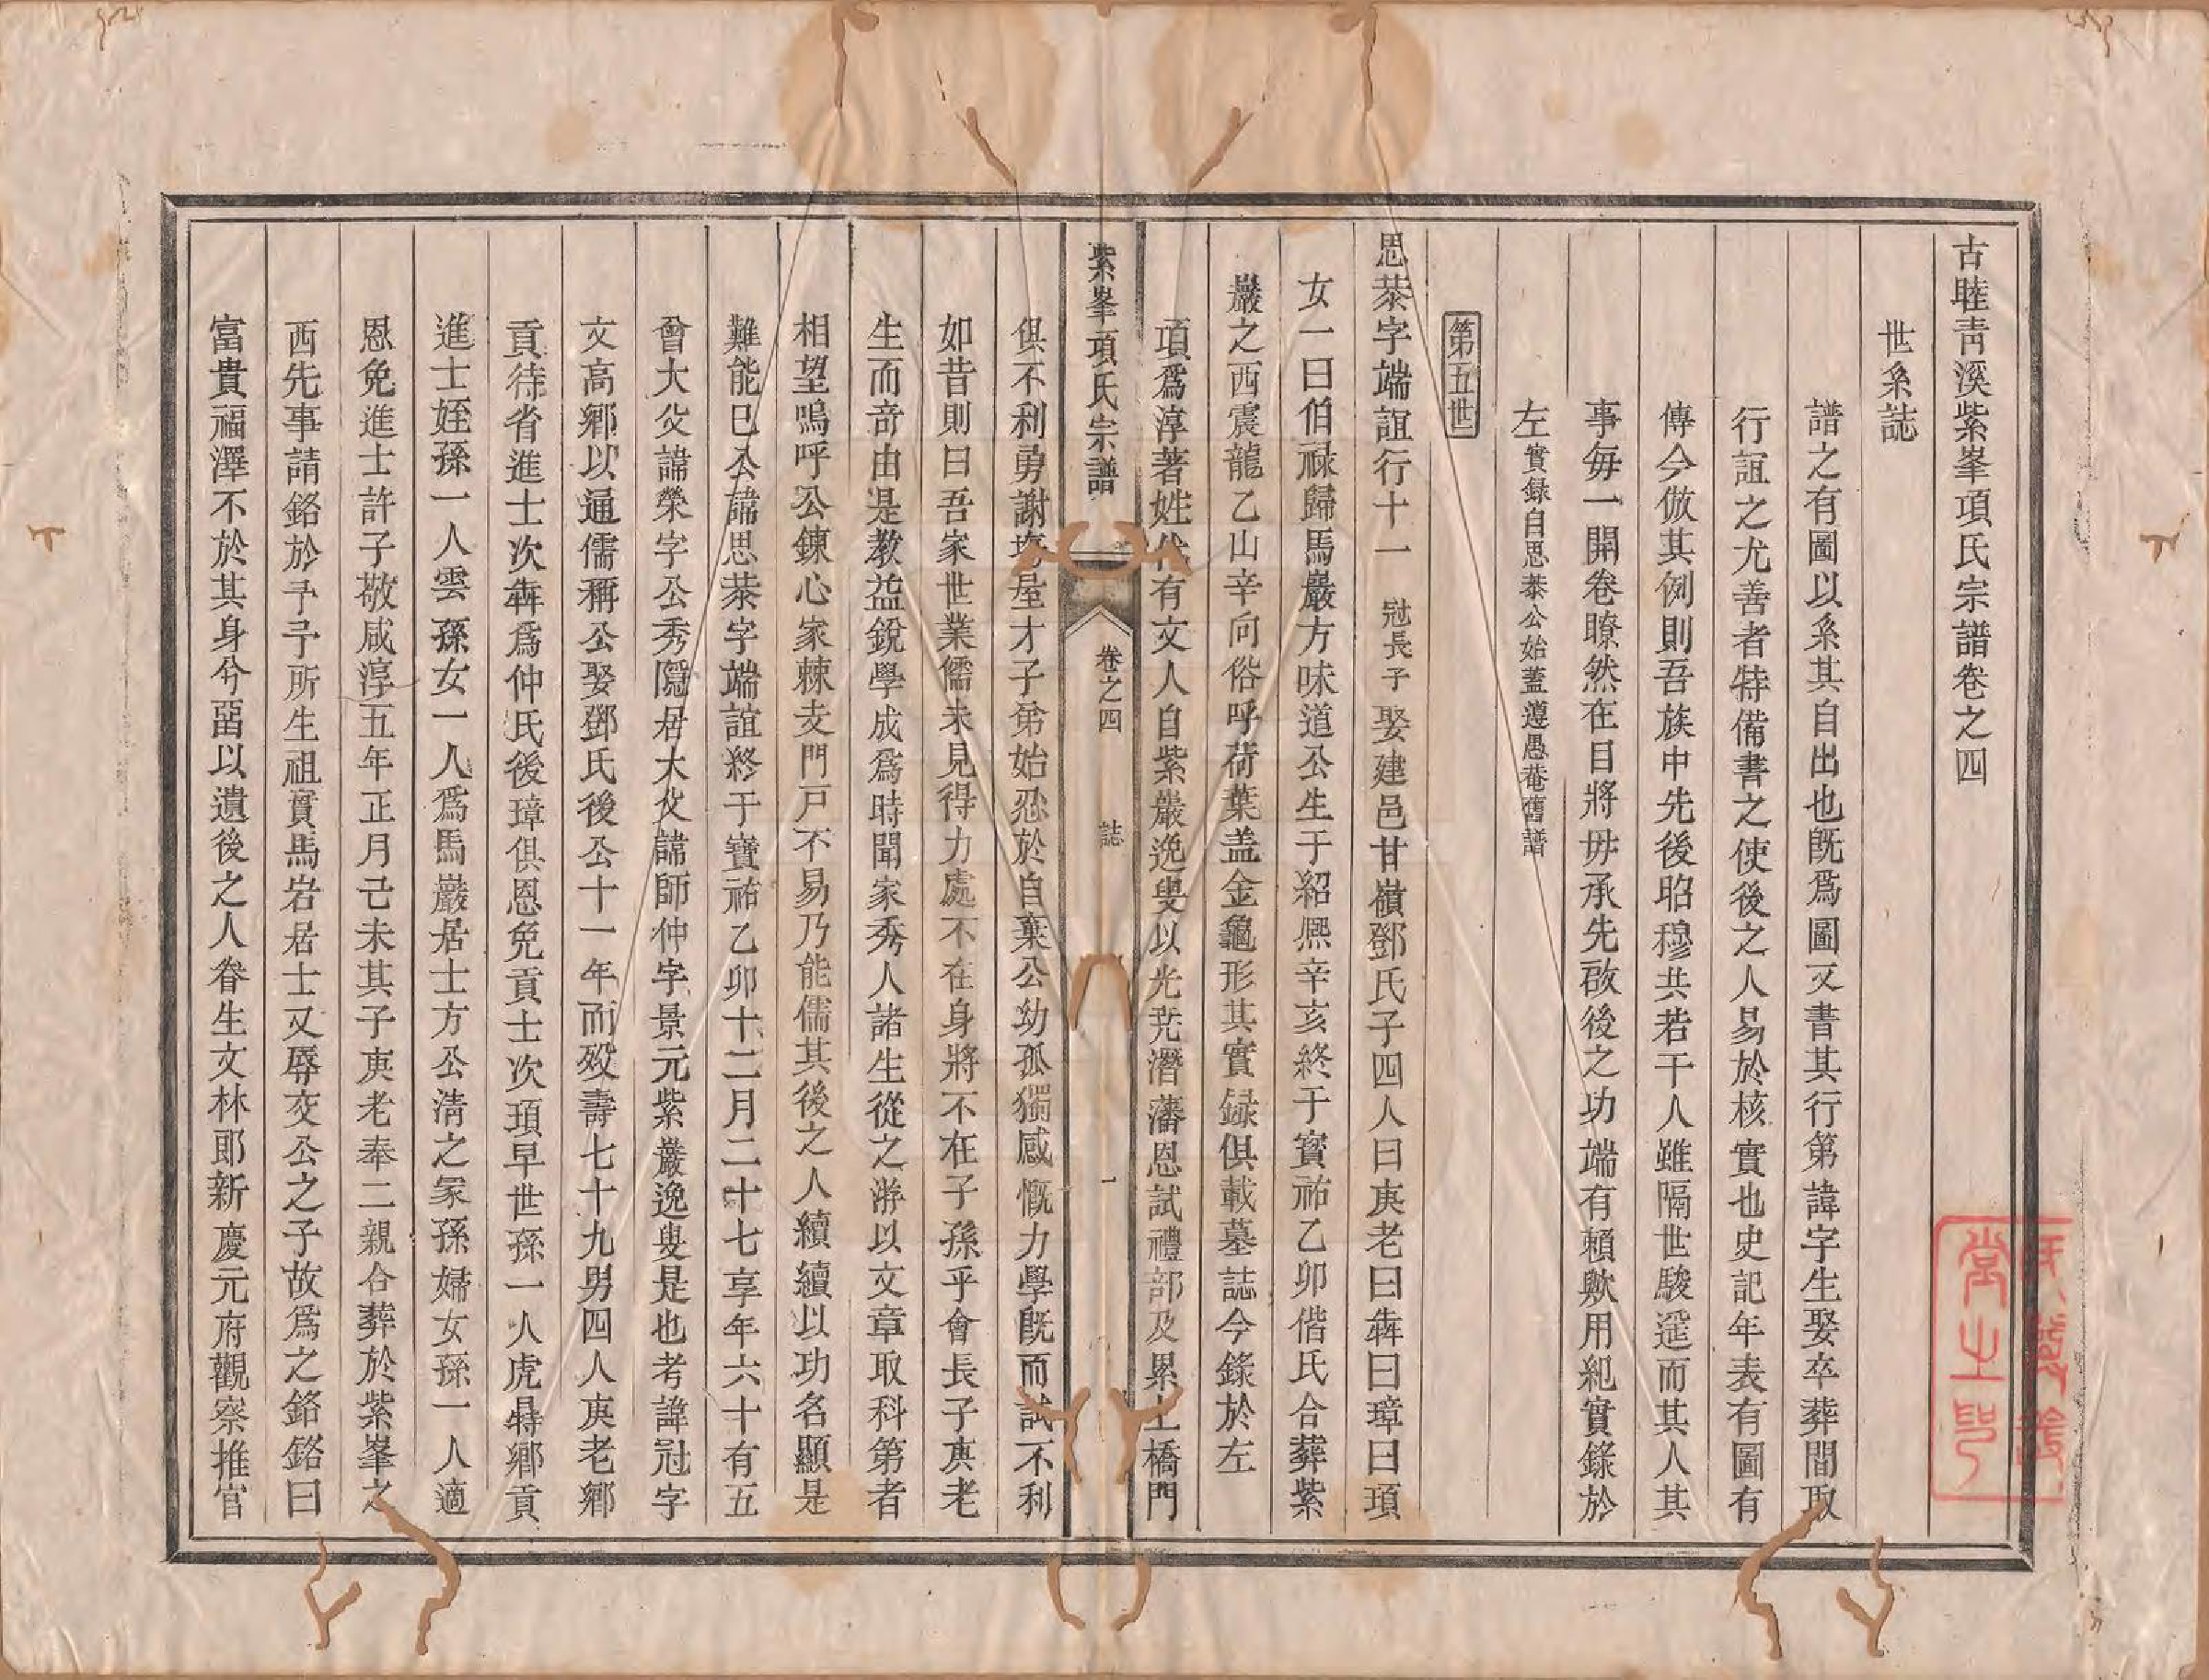 古睦青溪紫峯項氏宗譜卷之四
世系誌
譜之有圖以系其自出也既爲圖又書其行第諱字生娶卒葬間取
行誼之尤善者特備書之使後之人易於核實也史記年表有圖有
傳今倣其例則吾族中先後昭穆共若干人雖隔世駿遥而其人其
事毎一開卷瞭然在目將毋承先啟後之功端有賴歟用紀實錄於
左實録自思恭公始蓋遵愚菴舊譜
第五世
思恭字端誼行十一冠長子娶建邑甘嶺鄧氏子四人曰庚老曰犇曰璋曰頊
女一曰伯祿歸馬巖方味道公生于紹興辛亥終于寳祐乙卯偕氏合葬紫
巖之西震龍乙山辛向俗呼荷葉盖金龜形其實録俱載墓誌今錄於左
項爲淳著姓代有文人自紫巖逸叟以光尭潛藩恩試禮部及累上橋門
紫峯項氏宗譜
卷之四
誌
一
俱不利勇謝塲屋才子弟始忍於自棄公幼孤獨感慨力學既而試不利
如昔則曰吾家世業儒未見得力處不在身將不在子孫乎會長子庚老
生而竒由是教益銳學成爲時聞家秀人諸生從之游以文章取科第者
相望嗚呼公鍊心家棘支門戸不易乃能儒其後之人續續以功名顯是
難能已公諱思恭字端誼終于寶祐乙卯十二月二十七享年六十有五
曾大父諱榮字公秀隱居大父諱師仲字景元紫巖逸叟是也考諱冠字
文高鄉以通儒稱公娶鄧氏後公十一年而歿壽七十九男四人庚老鄉
貢待省進士次犇爲仲氏後璋俱恩免貢士次頊早世孫一人虎㝵鄉貢
進士姪孫一人雲孫女一人爲馬巖居士方公淸之冢孫婦女孫一人適
恩免進士許子敬咸淳五年正月己未其子庚老奉二親合葬於紫峯之
西先事請銘於予予所生祖實馬岩居士又辱交公之子故爲之銘銘曰
富貴福澤不於其身兮畱以遺後之人眷生文林郎新慶元府觀察推官